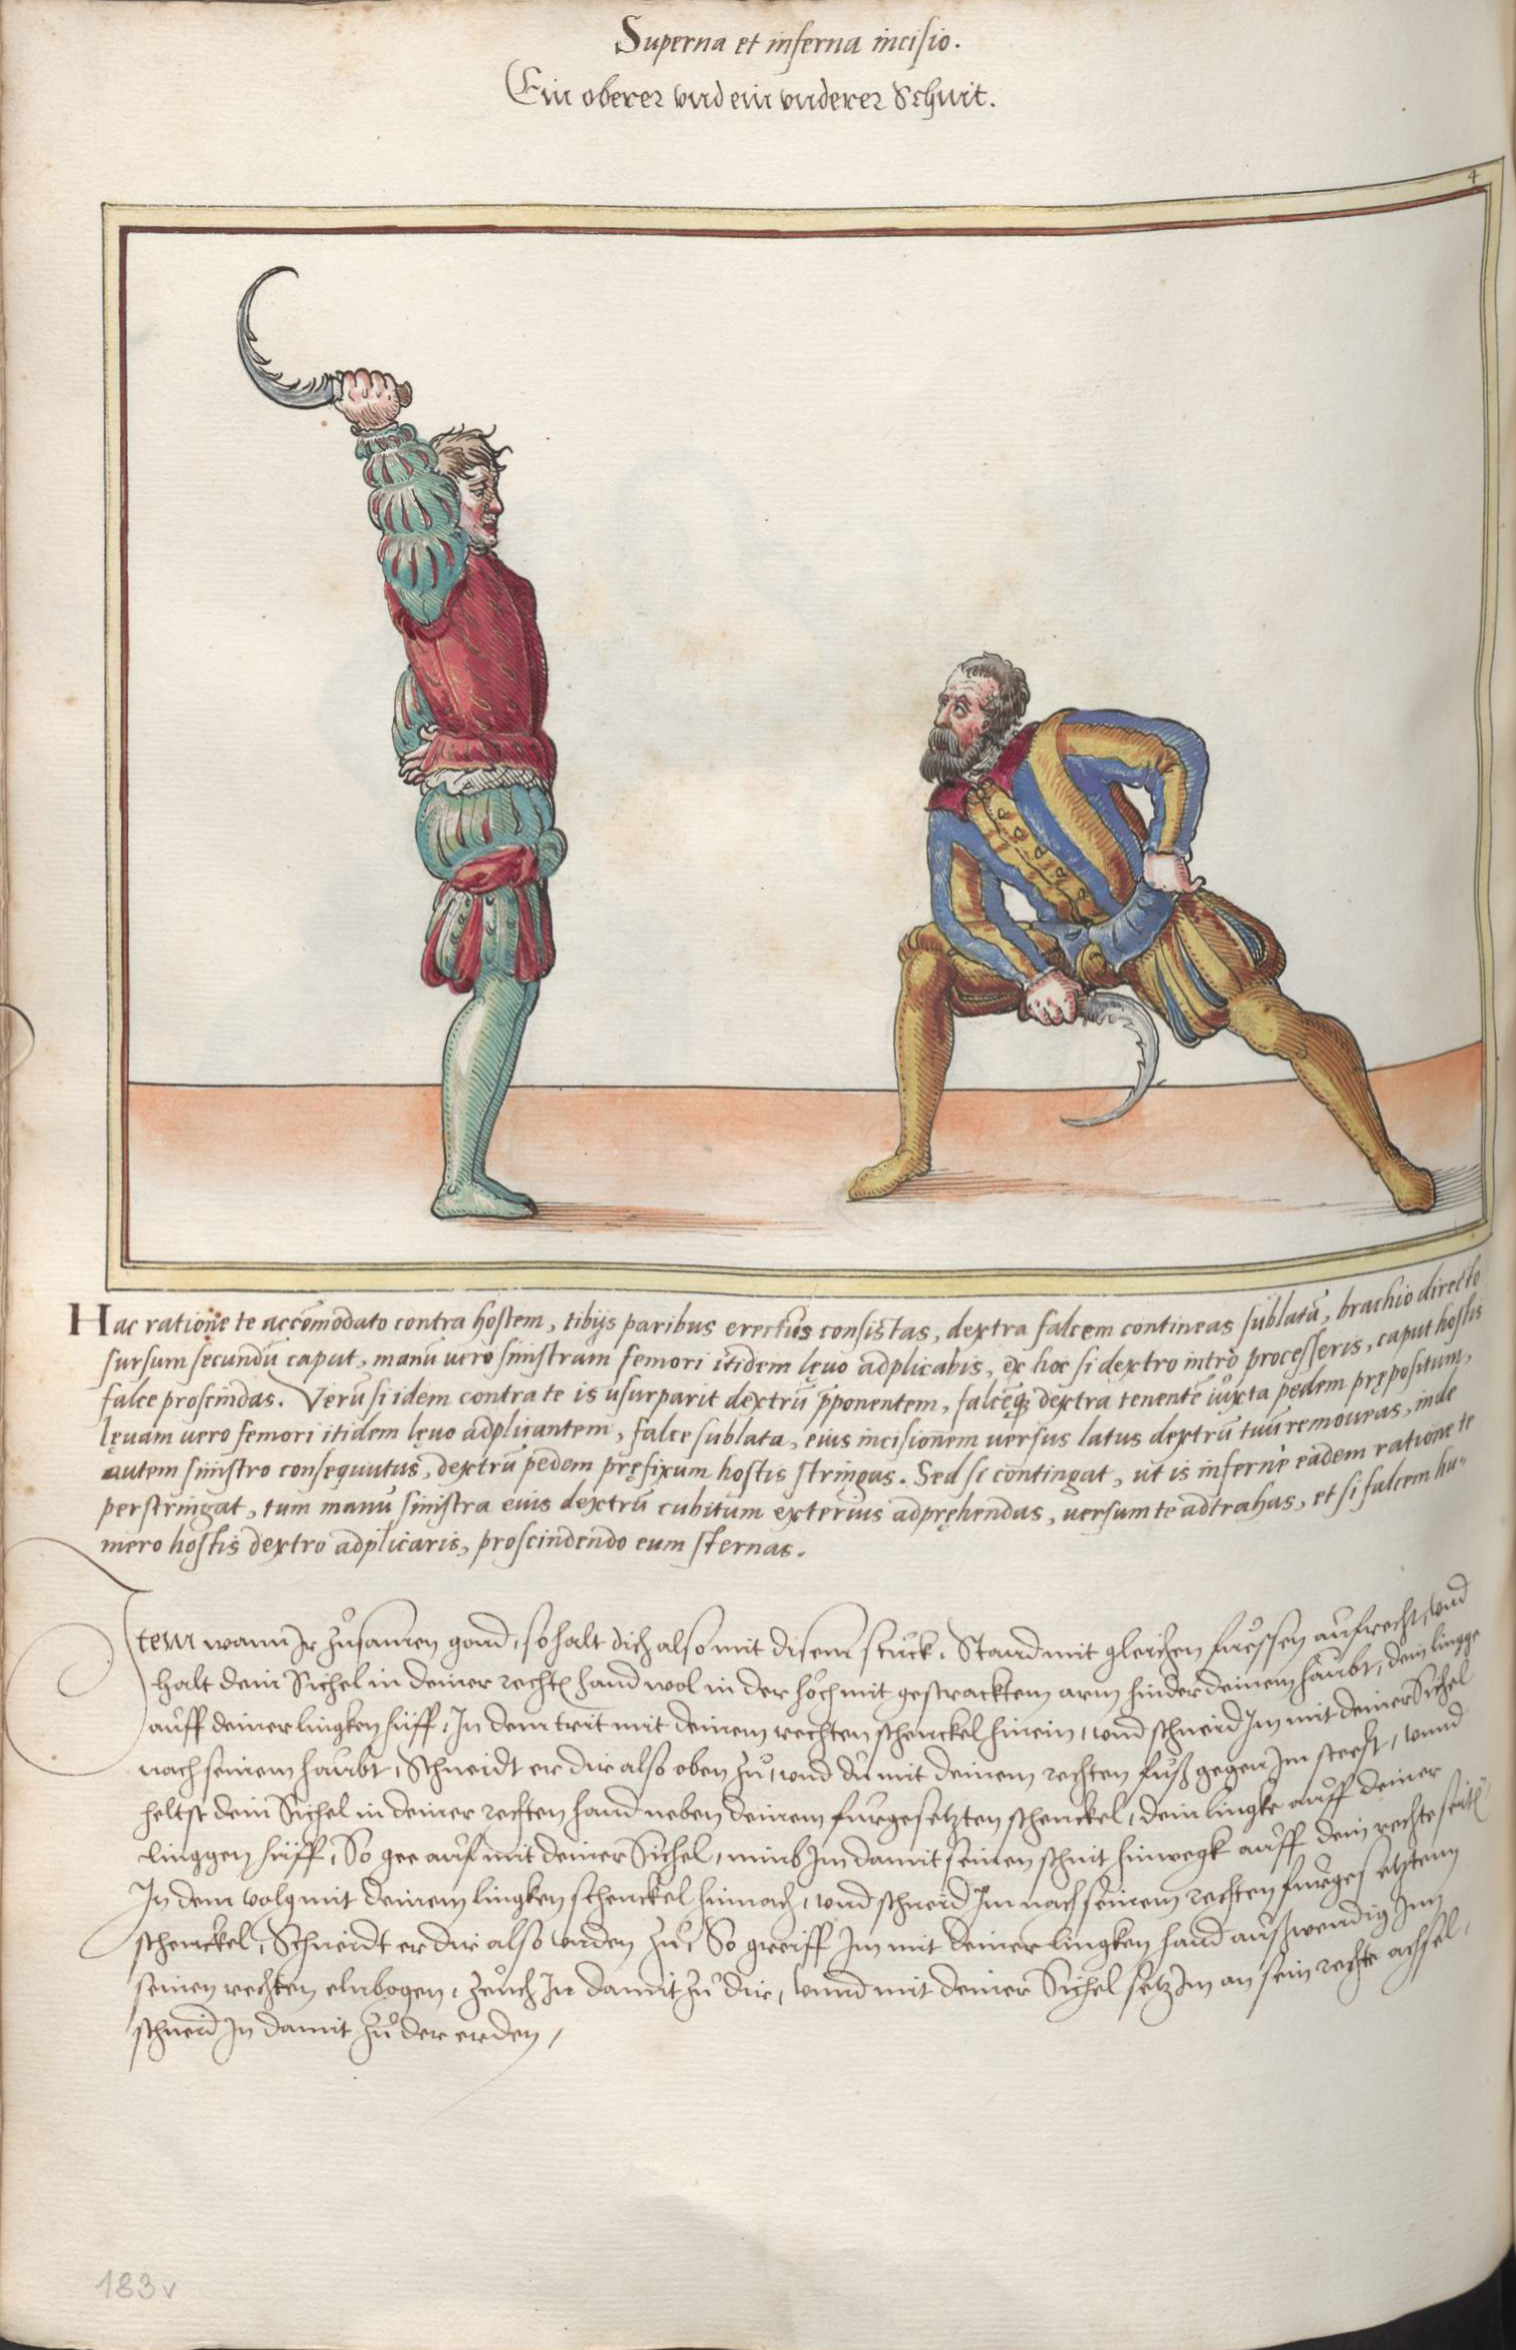 Superna et inferna incisio.
Ein oberer vnd ein vnderer Schnit.
4
Hac ratione te accōmodato contra hostem, tibijs paribus erectus consistas, dextra falcem contineas sublatā, brachio directo
sursum secundū caput, manū vero sinistram femori itidem lęvo adplicabis, ex hoc si dextro intro processeris, caput hostis
falce proscindas. Verū si idem contra te is usurparit dextrū p̄ponentem, falcēq; dextra tenentē iuxta pedem prępositum,
lęuam uero femori itidem lęuo adplicantem, falce sublata, eius incisionem uersus latus dextrū tuū remoueas, inde
autem sinistro consequutus, dextrū pedem pręfixum hostis stringas. Sed si contingat, ut is infernè eadem ratione te
perstringat, tum manū sinistra eius dextrū cubitum exterius adpręhendas, uersum te adtrahas, et si falcem hu-
mero hostis dextro adplicaris, proscindendo eum sternas.
Item wann Ir zůsamen gond, so halt dich also mit disem stuck. Stand mit gleichen fuessen aufrecht, vnd
halt dein Sichel in deiner rechtē hand wol in der höch mit gestracktem arm hinder deinem haubt, dein lingge
auff deiner lingken hüff, In dem trit mit deinem rechten schenckel hinein, vnd schneid Im mit deiner Sichel
nach seinem haubt, Schneidt er dir also oben zů, vnd du mit deinem rechten fuß gegen Im steest, vnnd
heltst dein Sichel in deiner rechten hand neben deinem furgesetzten schenckel, dein lingke auff deiner
linggen hüff, So gee auf mit deiner Sichel, nimb Im damit seinen schnit hinwegk auff dein rechte seitē
In dem volg mit deinem lingken schenckel hinnach, vnd schneid Im nach seinem rechten furgesetztem
schenckel, Schneidt er dir also vnden zů, So greiff Im mit deiner lingken hand außwendig Inn
seinen rechten elnbogen, zeuch In damit zů dir, vnnd mit deiner Sichel setz Im an sein rechte achsel,
schneid In damit zů der erden,
183v